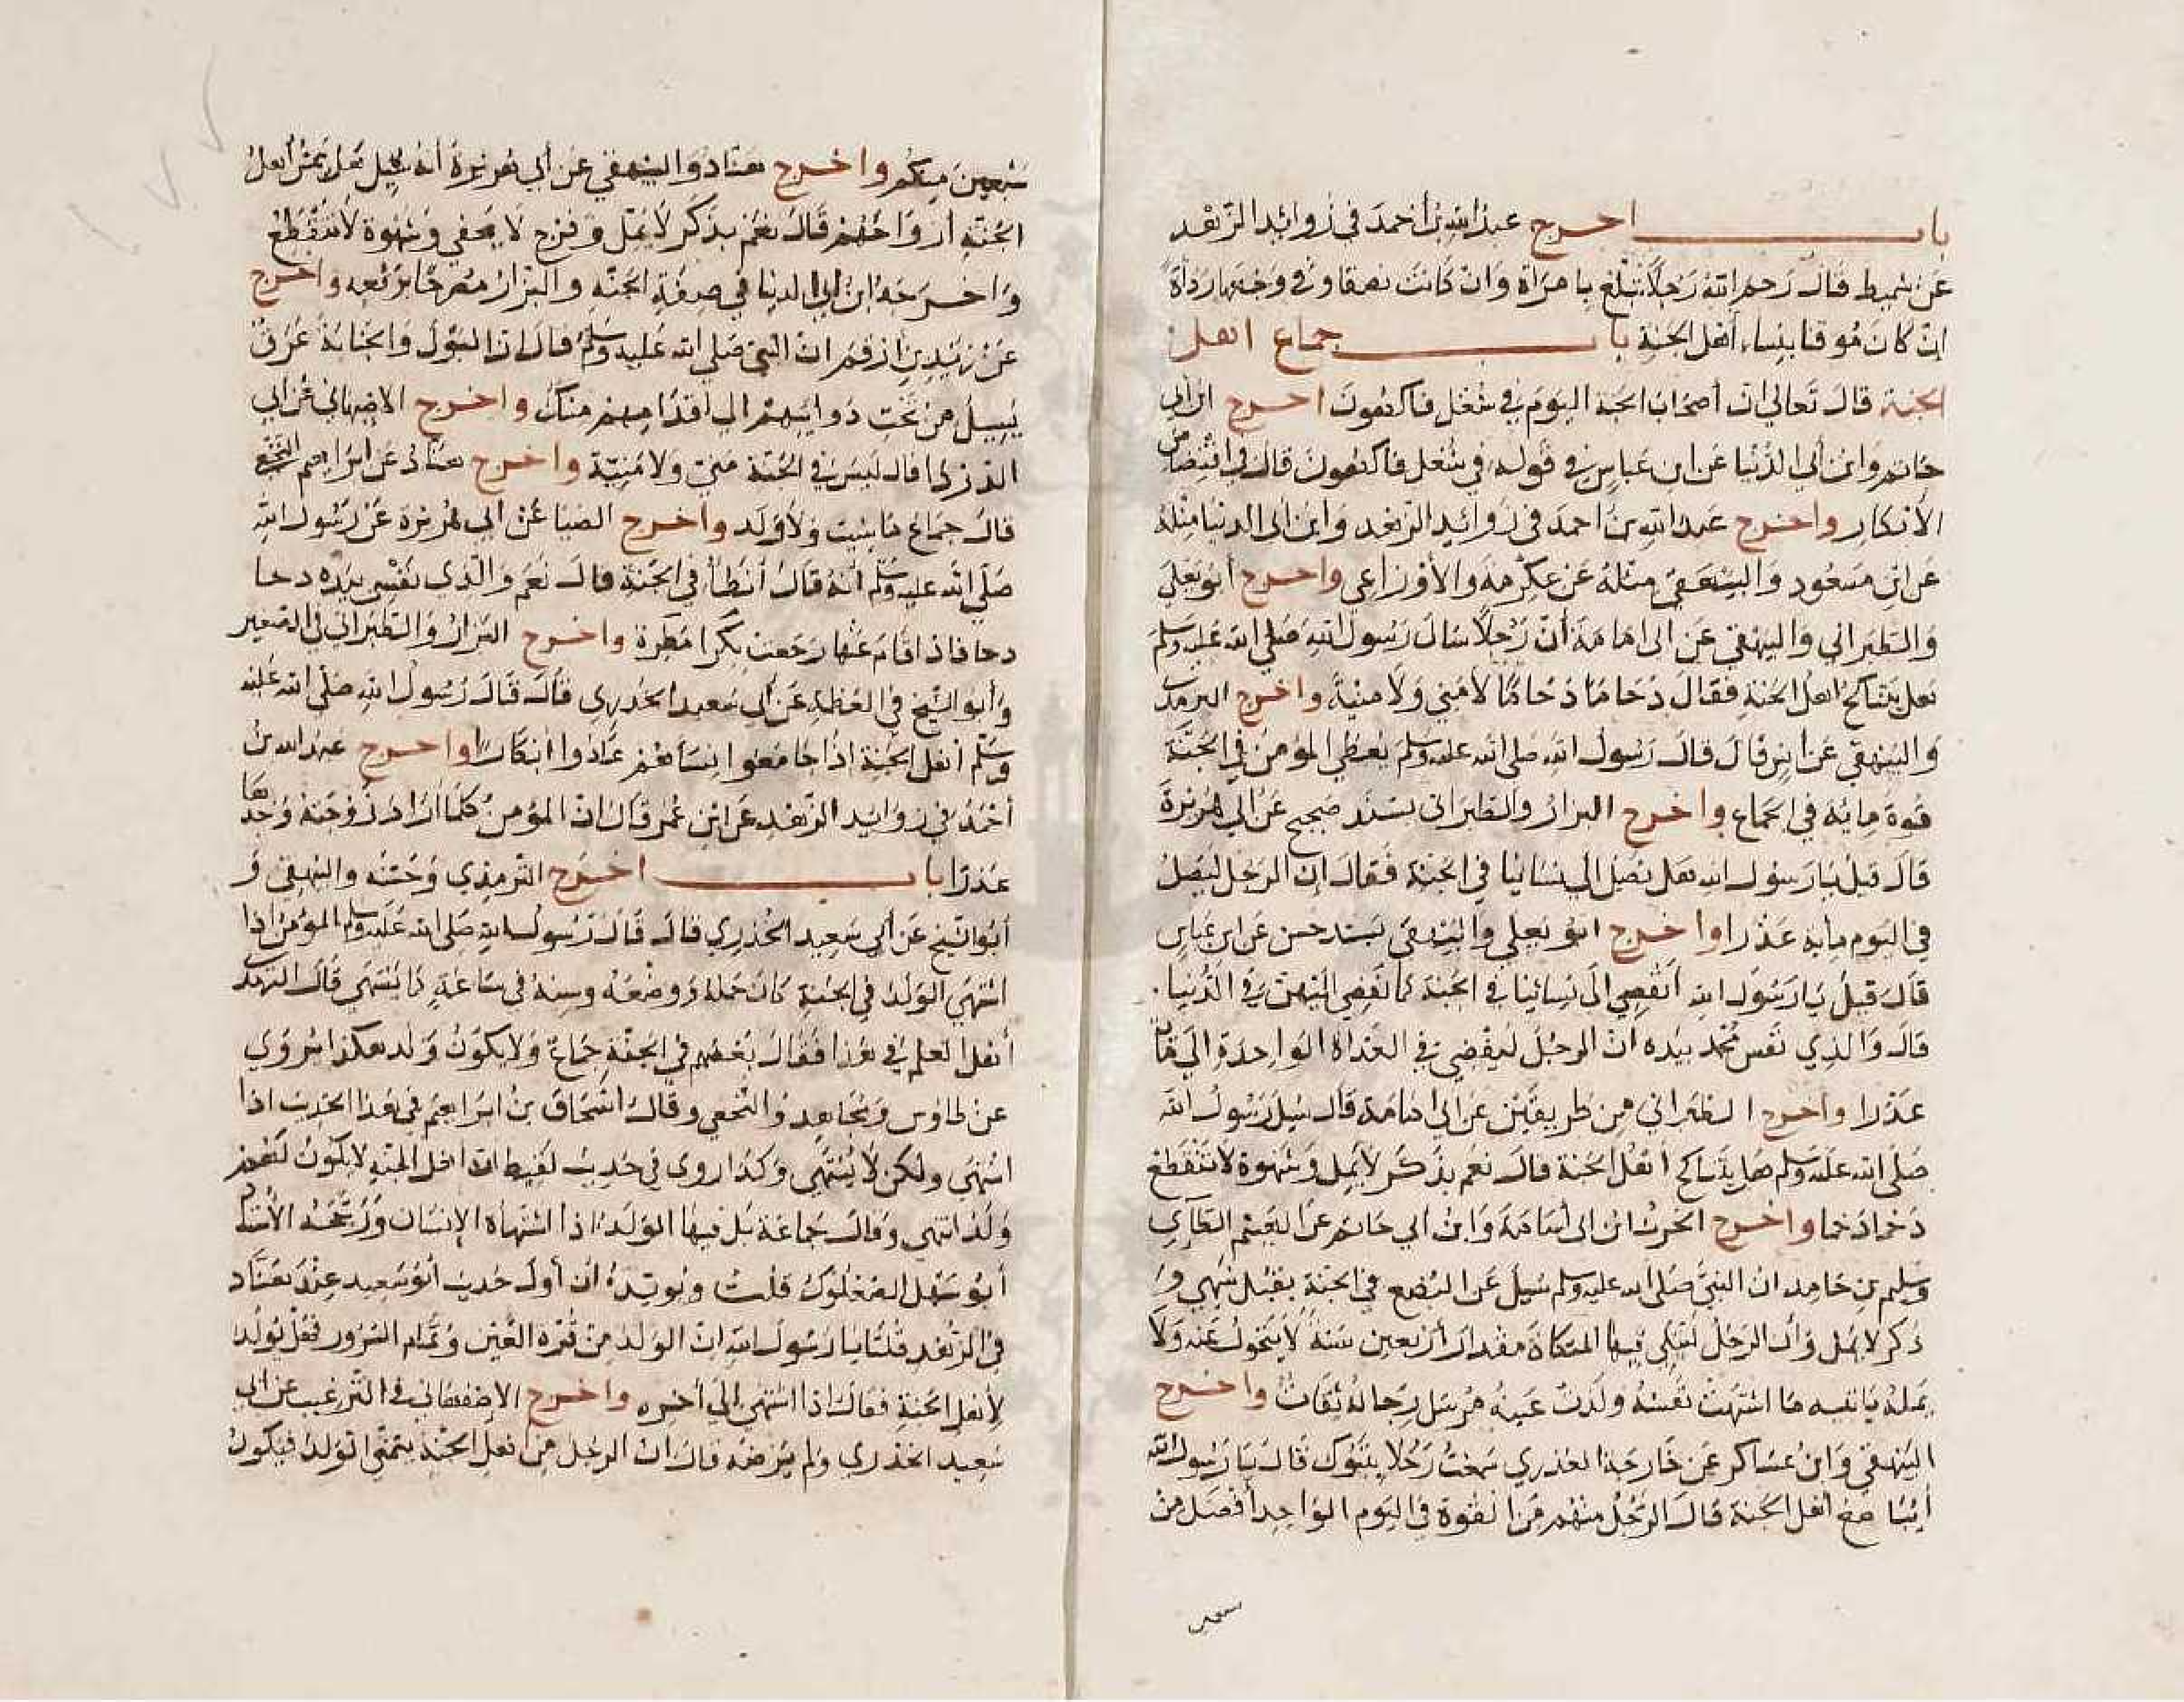 باب اخرج عبد الله بن أحمد في زوائد الزهد
عن شميط قال رحم الله رجلا تبلغ بامراة وان كانت نصفا وفي وجهها ردأة
ان كان موقنا بنساء أهل الجنة باب جماع اهل
الجنة قال تعالى ان أصحاب الجنة اليوم في شغل فاكهون اخرج ابن أبي
حاتم وابن أبي الدنيا عن ابن عباس في قوله في شغل فاكهون قال في افتضاض
الابكار واخرج عبد الله بن احمد في زوائد الزهد وابن ابي الدنيا مثله
عن ابن مسعود والبيهقي مثله عن عكرمة والأوزاعي واخرج أبو يعلى
والطبراني والبيهقي عن ابي امامة أن رجلا سال رسول الله صلى الله عليه وسلم
هل يتناكح اهل الجنة فقال دحاما دحاما لا مني ولا منية واخرج الترمذي
والبيهقي عن أنس قال قال رسول الله صلى الله عليه وسلم يعطى المؤمن في الجنة
قوة ماية في الجماع واخرج البزار والطبراني بسند صحيح عن ابي هريرة
قال قيل يا رسول الله هل نصل الي نسائنا في الجنة فقال ان الرجل ليصل
في اليوم ماية عذرا واخرج ابو يعلى والبيهقي بسند حسن عن ابن عباس
قال قيل يا رسول الله أنفضي الى نسائنا في الجنة كما نفضي اليهن في الدنيا.
قال والذي نفس محمد بيده ان الرجل ليفضي في الغداة الواحدة الى ماية
عذرا واخرج الطبراني من طريقين عن ابي امامة قال سيل رسول الله
صلى الله عليه وسلم هل يتناكح أهل الجنة قال نعم بذكر لا يمل وشهوة لا تنقطع
دحما دحما واخرج الحرث ابن ابي أسامة وابن أبي حاتم عن الهيثم الطاي
وسليم بن عامر ان النبي صلى الله عليه وسلم سيل عن البضع في الجنة بقبل شهي و
ذكر لا يمل وان الرجل ليتكى فيها المتكاة مقدار أربعين سنة لا يتحول عنه ولا
يمله ياتيه ما اشتهت نفسه ولذت عينه مرسل رجاله ثقات واخرج
البيهقي وابن عساكر عن خارجة العذري سمعت رجلا بتبوك قال يا رسول الله
أيباضع أهل الجنة قال الرجل منهم من القوة في اليوم الواحد أفضل من
سبعين
سبعين منكم واخرج هناد والبيهقي عن أبي هريرة أنه سيل هل يمس أهل
الجنة ازواجهم قال نعم بذكر لا يمل وفرج لا يحفى وشهوة لا تنقطع
واخرجه ابن ابي الدنيا في صفة الجنة والبزار مصرحا برفعه واخرج
عن زيد بن ارقم ان النبي صلى الله عليه وسلم قال ان البول والجنابة عرق
يسيل من تحت ذوائبهم الى أقدامهم مسك واخرج الاصبهاني عن ابي
الدرداء قال ليس في الجنة مني ولا منية واخرج هناد عن ابراهيم النخعي
قال جماع ما شيت ولا ولد واخرج الضيا عن ابي هريرة عن رسول الله
صلى الله عليه وسلم أنه قال أنطأ في الجنة قال نعم والذي نفسي بيده دحما
دحما فاذا قام عنها رجعت بكرا مطهرة واخرج البزار والطبراني في الصغير
وأبو الشيخ في العظمة عن أبي سعيد الخدري قال قال رسول الله صلى الله عليه
وسلم أهل الجنة اذا جامعوا نسآهم عادوا ابكارا واخرج عبد الله بن
أحمد في زوايد الزهد عن ابن عمر قال ان المؤمن كلما اراد زوجته وجدها
عذرا باب اخرج الترمذي وحسنه والبيهقي و
أبو الشيخ عن أبي سعيد الخدري قال قال رسول الله صلى الله عليه وسلم المؤمن اذا
اشتهى الولد في الجنة كان حمله ووضعه وسنه في ساعة كما يشتهي قال الترمذي
أهل العلم في هذا فقال بعضهم في الجنة جماع ولا يكون ولد هكذا روي
عن طاوس ومجاهد والنخعي وقال اسحاق بن ابراهيم في هذا الحديث اذا
اشتهى ولكن لا يشتهي وكذا روى في حديث لقيط ان اهل الجنة لا يكون لهم
ولد انتهى وقال جماعة بل فيها الولد اذا اشتهاه الإنسان ورجحه الأستاذ
أبو سهل الصعلوكي قلت ويويده ان أول حديث أبو سعيد عند هناد
في الزهد قلنا يا رسول الله ان الولد من قرة العين وتمام السرور فهل يولد
لأهل الجنة فقال اذا اشتهى الي أخره واخرج الاصفهاني في الترغيب عن ابي
سعيد الخدري ولم يرفعه قال ان الرجل من أهل الجنة يتمنى الولد فيكون